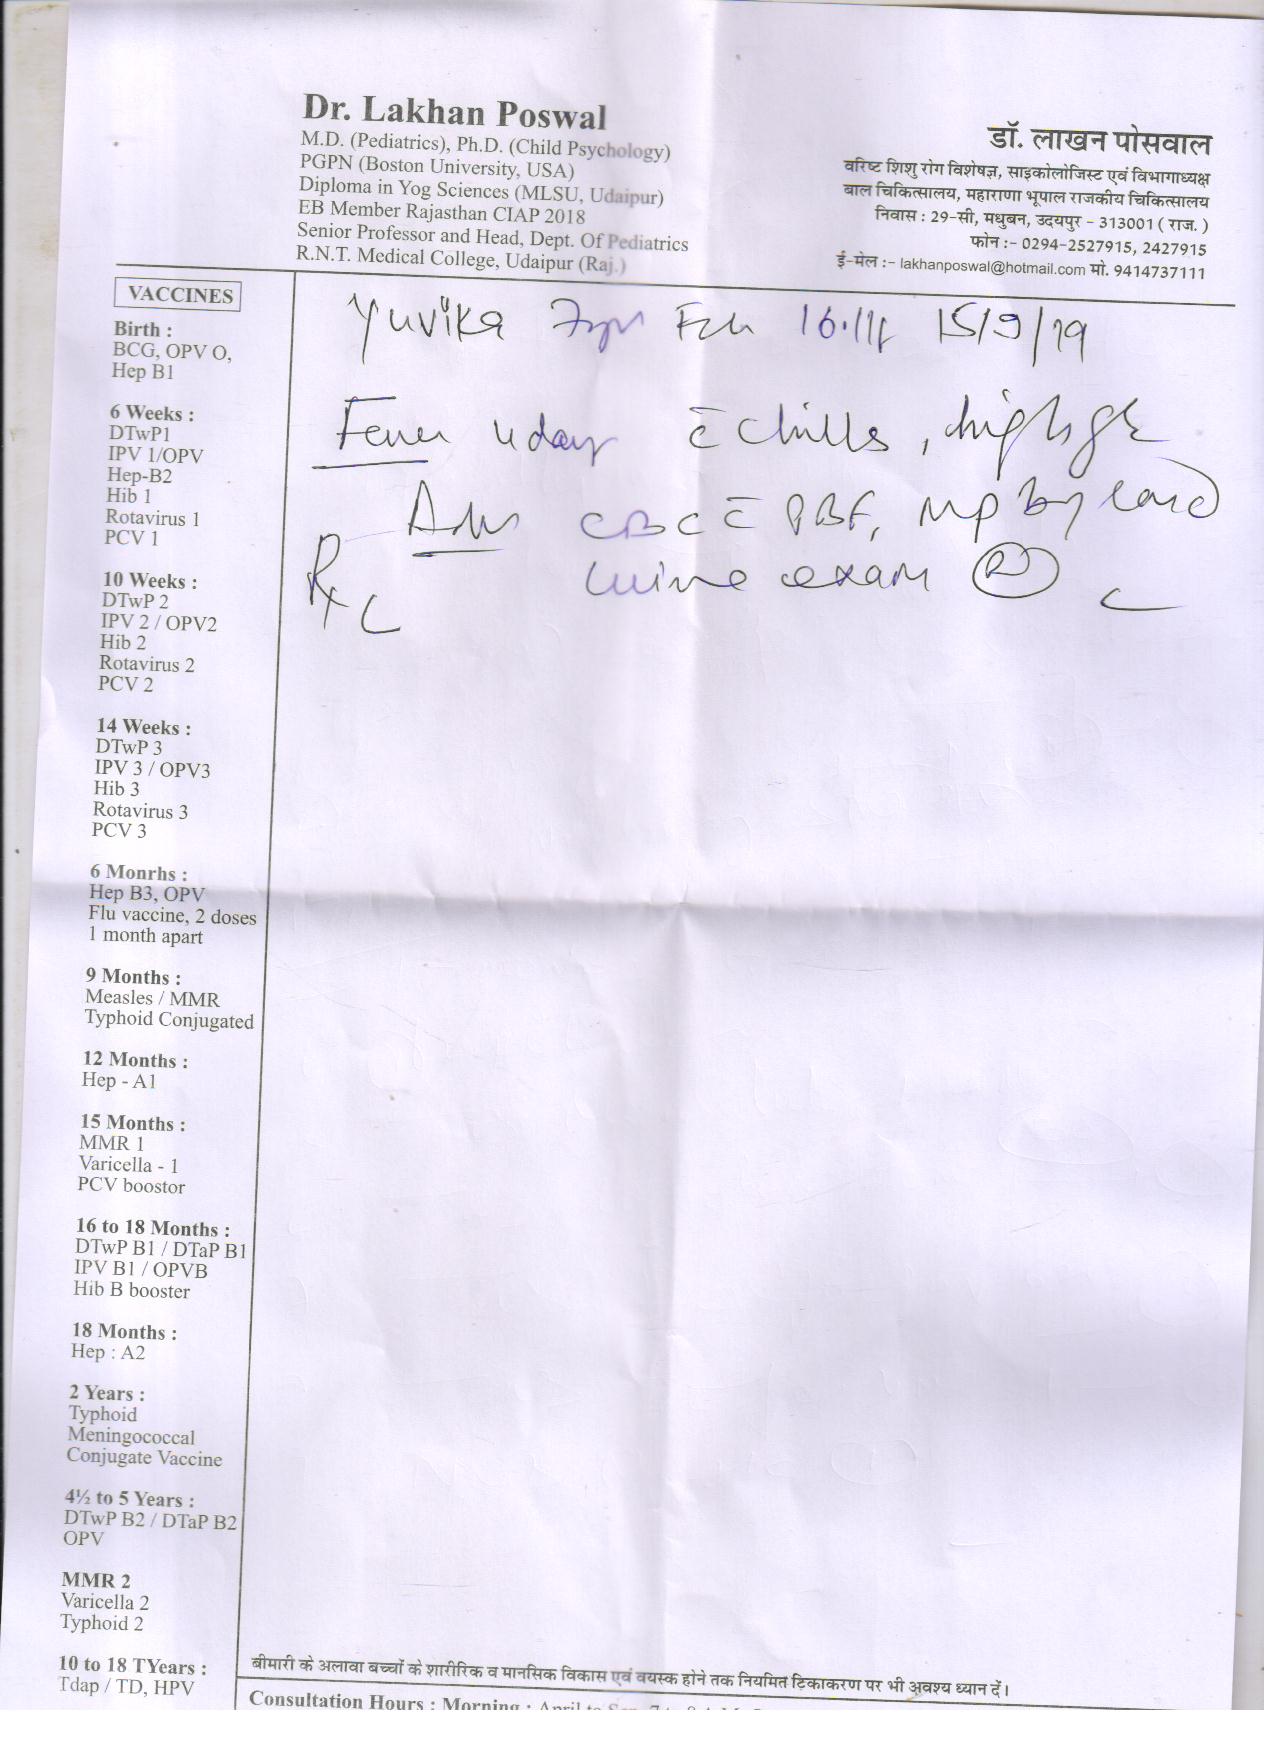 Dr. Lakhan Poswal
M.D. (Pediatrics), Ph.D. (Child Psychology)
PGPN (Boston University, USA)
Diploma in Yog Sciences (MLSU, Udaipur)
EB Member Rajasthan CIAP 2018
Senior Professor and Head, Dept. Of Pediatrics
R.N.T. Medical College, Udaipur (Raj.)
डॉ. लाखन पोसवाल
वरिष्ट शिशु रोग विशेषज्ञ, साइकोलोजिस्ट एवं विभागाध्यक्ष
बाल चिकित्सालय, महाराणा भूपाल राजकीय चिकित्सालय
निवास : 29-सी, मधुबन, उदयपुर - 313001 ( राज. )
फोन :- 0294-2527915, 2427915
ई-मेल :- lakhanposwal@hotmail.com मो. 9414737111
VACCINES
Birth :
BCG, OPV O,
Hep B1
6 Weeks :
DTwP1
IPV 1/OPV
Hep-B2
Hib 1
Rotavirus 1
PCV 1
10 Weeks :
DTwP 2
IPV 2 / OPV2
Hib 2
Rotavirus 2
PCV 2
14 Weeks :
DTwP 3
IPV 3 / OPV3
Hib 3
Rotavirus 3
PCV 3
6 Monrhs :
Hep B3, OPV
Flu vaccine, 2 doses
1 month apart
9 Months :
Measles / MMR
Typhoid Conjugated
12 Months :
Hep - A1
15 Months :
MMR 1
Varicella - 1
PCV boostor
16 to 18 Months :
DTwP B1 / DTaP B1
IPV B1 / OPVB
Hib B booster
18 Months :
Hep : A2
2 Years :
Typhoid
Meningococcal
Conjugate Vaccine
4½ to 5 Years :
DTwP B2 / DTaP B2
OPV
MMR 2
Varicella 2
Typhoid 2
10 to 18 TYears :
Tdap / TD, HPV
Yuvika 15/9/19
Fever 4 day c̄ chills, high
Adv CBC c̄ PBF, MP by card
Rx urine exam (R)
बीमारी के अलावा बच्चों के शारीरिक व मानसिक विकास एवं वयस्क होने तक नियमित टिकाकरण पर भी अवश्य ध्यान दें।
Consultation Hours : Morning :